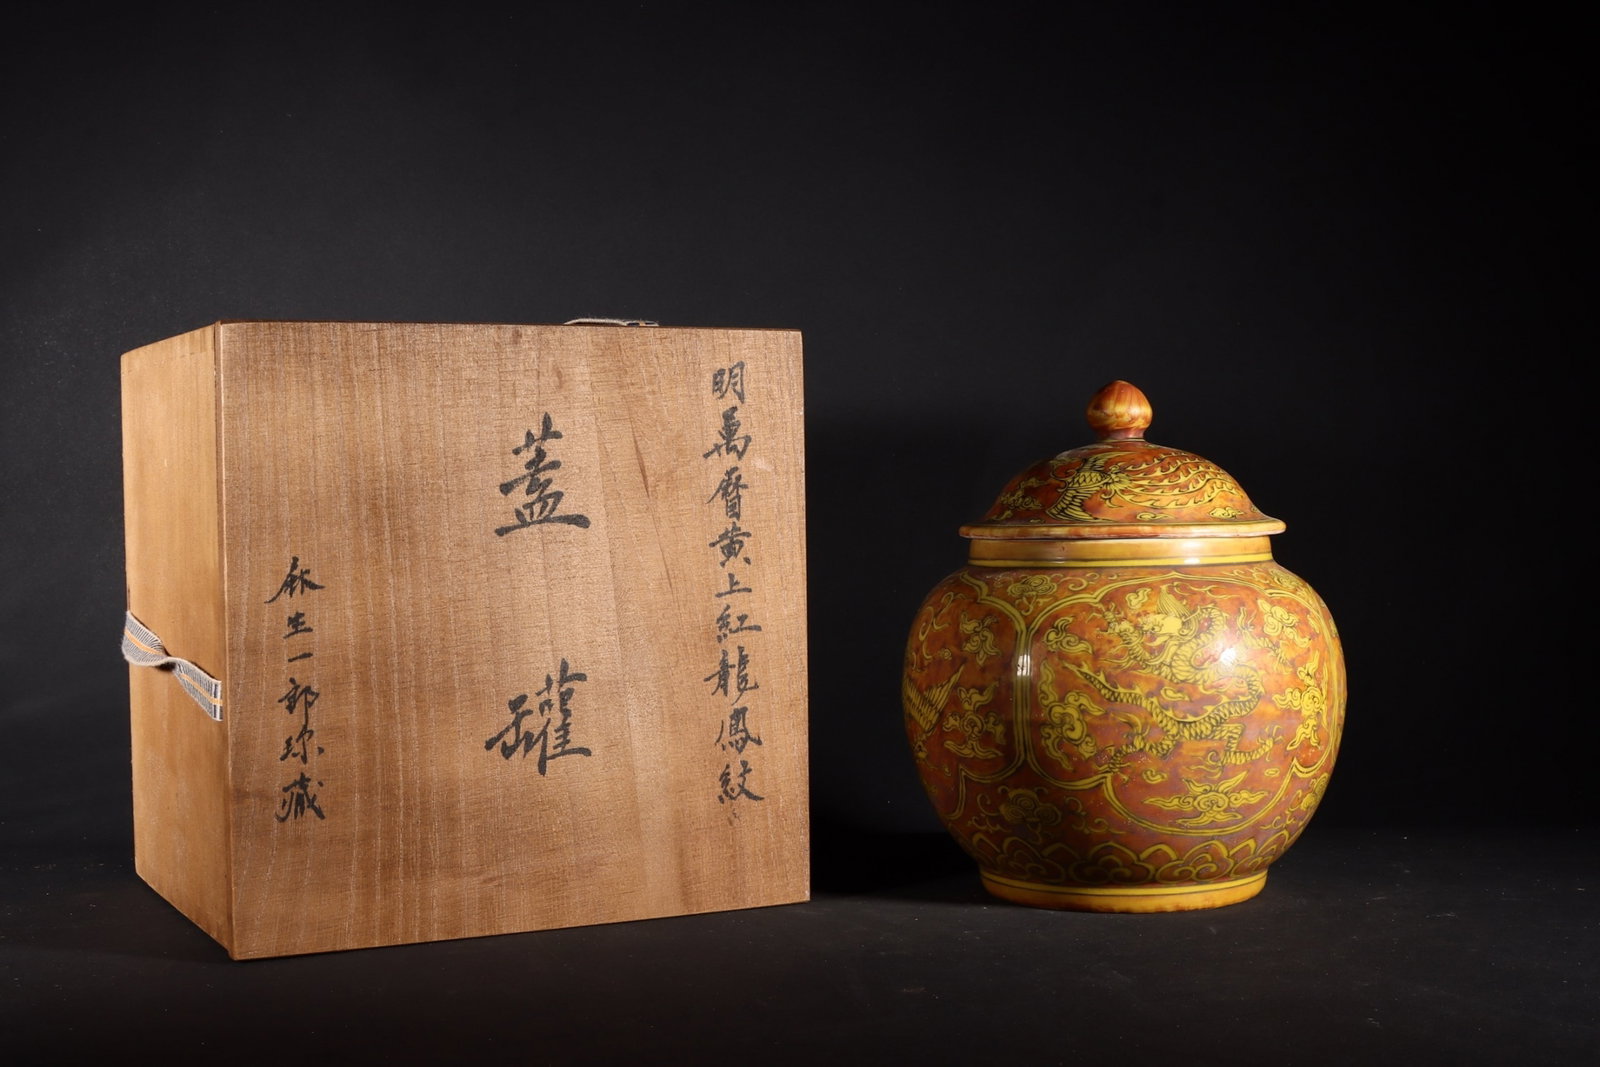 明萬曆黃上紅龍鳳紋
蓋罐
麻生一郎珍藏